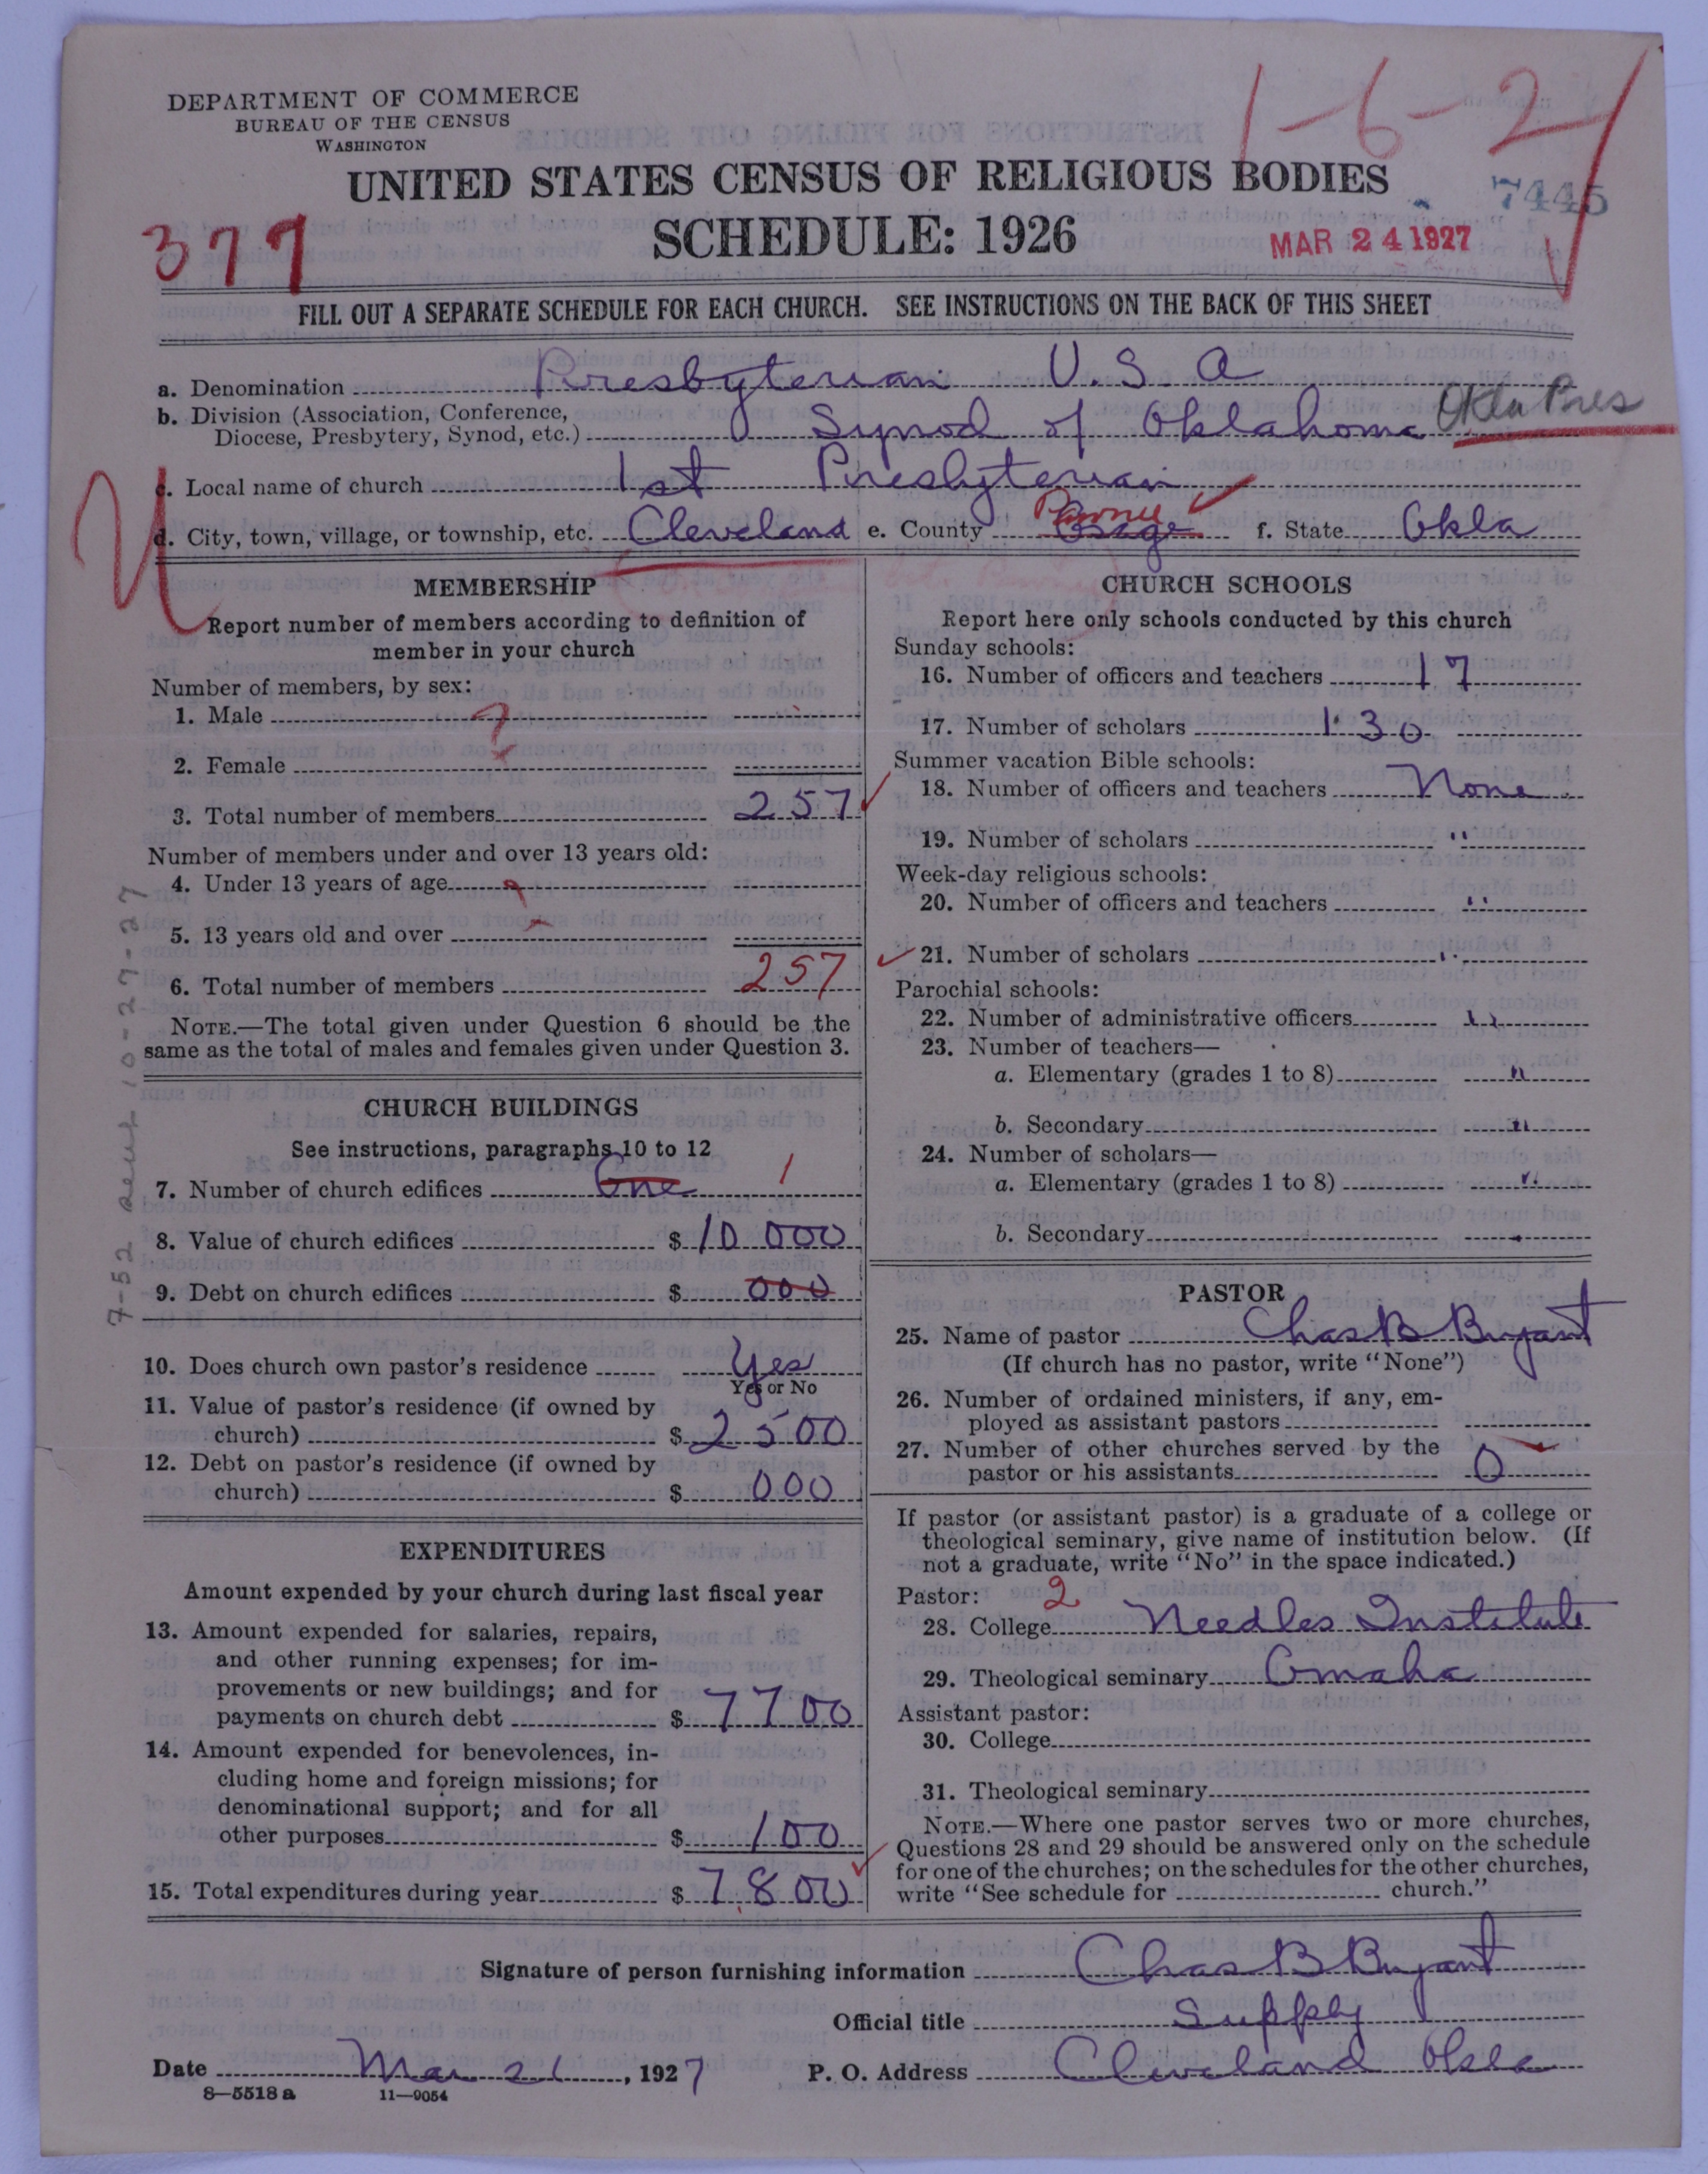 DEPARTMENT OF COMMERCE
BUREAU OF THE CENSUS
WASHINGTON
1-6-2
UNITED STATES CENSUS OF RELIGIOUS BODIES
7445
377
SCHEDULE: 1926
MAR 24 1927
FILL OUT A SEPARATE SCHEDULE FOR EACH CHURCH. SEE INSTRUCTIONS ON THE BACK OF THIS SHEET
a. Denomination Presbyterian U.S.A
b. Division (Association, Conference,
Diocese, Presbytery, Synod, etc.) Synod of Oklahoma Okla Pres
c. Local name of church 1st Presbyterian
d. City, town, village, or township, etc. Cleveland e. County Osage Pawnee f. State Okla
MEMBERSHIP
Report number of members according to definition of
member in your church
Number of members, by sex:
1. Male ?
2. Female
3. Total number of members 257
Number of members under and over 13 years old:
4. Under 13 years of age ?
5. 13 years old and over
6. Total number of members 257
NOTE.—The total given under Question 6 should be the
same as the total of males and females given under Question 3.
CHURCH BUILDINGS
See instructions, paragraphs 10 to 12
7. Number of church edifices One 1
8. Value of church edifices $ 10 000
9. Debt on church edifices $ 000
10. Does church own pastor's residence Yes
Yes or No
11. Value of pastor's residence (if owned by
church) $ 2500
12. Debt on pastor's residence (if owned by
church) $ 000
EXPENDITURES
Amount expended by your church during last fiscal year
13. Amount expended for salaries, repairs,
and other running expenses; for im-
provements or new buildings; and for
payments on church debt $ 7700
14. Amount expended for benevolences, in-
cluding home and foreign missions; for
denominational support; and for all
other purposes $ 100
15. Total expenditures during year $ 7800
CHURCH SCHOOLS
Report here only schools conducted by this church
Sunday schools:
16. Number of officers and teachers 17
17. Number of scholars 130
Summer vacation Bible schools:
18. Number of officers and teachers None
19. Number of scholars "
Week-day religious schools:
20. Number of officers and teachers "
21. Number of scholars "
Parochial schools:
22. Number of administrative officers "
23. Number of teachers—
a. Elementary (grades 1 to 8) "
b. Secondary "
24. Number of scholars—
a. Elementary (grades 1 to 8) "
b. Secondary
PASTOR
25. Name of pastor Chas B Bryant
(If church has no pastor, write "None")
26. Number of ordained ministers, if any, em-
ployed as assistant pastors
27. Number of other churches served by the
pastor or his assistants 0
If pastor (or assistant pastor) is a graduate of a college or
theological seminary, give name of institution below. (If
not a graduate, write "No" in the space indicated.)
Pastor: 2
28. College Needles Institute
29. Theological seminary Omaha
Assistant pastor:
30. College
31. Theological seminary
NOTE.—Where one pastor serves two or more churches,
Questions 28 and 29 should be answered only on the schedule
for one of the churches; on the schedules for the other churches,
write "See schedule for church."
Signature of person furnishing information Chas B Bryant
Official title Supply
Date Mar 21, 1927 P. O. Address Cleveland Okla
8—5518 a 11—9054
7-52 10-27-27